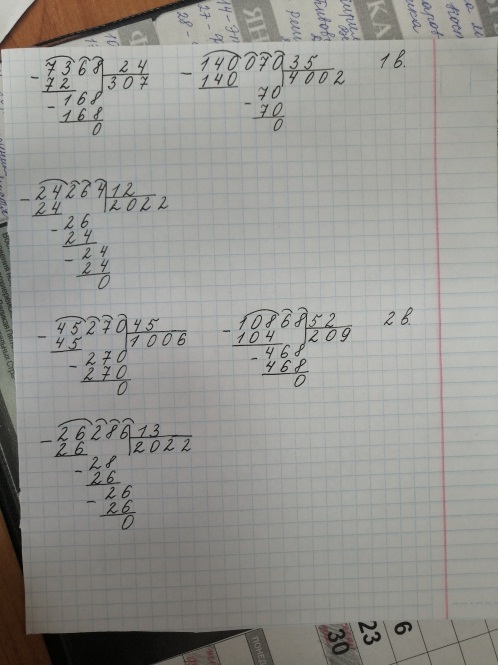 - 7368 | 24
72 | 307
- 168
168
0
- 140070 | 35
140 | 4002
- 70
70
0
1 в.
- 24264 | 12
24 | 2022
- 26
24
- 24
24
0
- 45270 | 45
45 | 1006
- 270
270
0
- 10868 | 52
104 | 209
- 468
468
0
2 в.
- 26286 | 13
26 | 2022
- 28
26
- 26
26
0
30
23
6